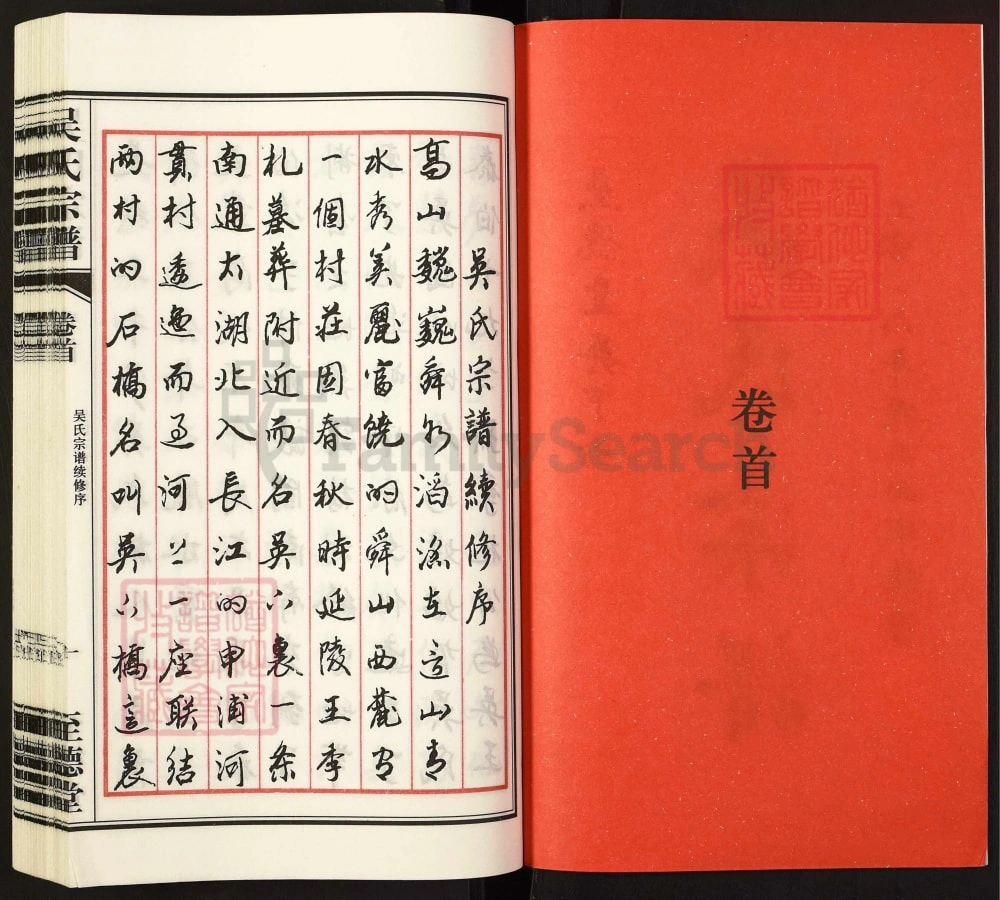 卷首
吳氏宗譜續修序
高山巍巍舜水滔滔在這山青
水秀美麗富饒的舜山西麓有
一個村莊因春秋時延陵王季
札墓葬附近而名吳六裏一条
南通太湖北入長江的申浦河
貫村逶迤而過河上一座联结
两村的石橋名叫吳六橋這裏
吴氏宗譜
卷首
吴氏宗谱续修序
一
至德堂
FamilySearch